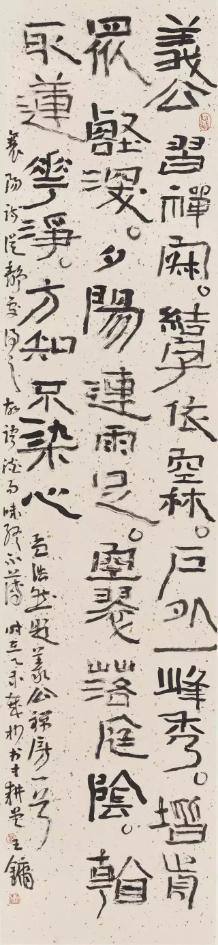 義公習禪寂。結宇依空林。戶外一峰秀。堦前
眾壑深。夕陽連雨足。空翠落庭陰。看
取蓮華淨。方知不染心 孟浩然題義公禪房一首
襄陽詩從靜處得之故語淡而味終不薄 時在乙未 耕堂 王鏞